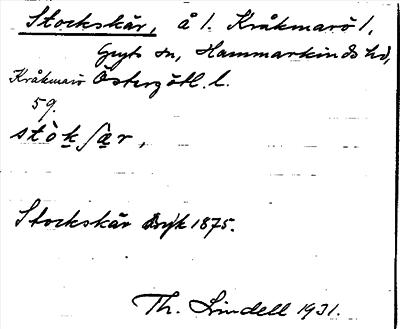 Stockskär, å l. Kråkmarö l,
Gryts sn, Hammarkinds hd,
Kråkmarö Östergötl. l.
59.
Stockskär Byk 1875.
Th. Lindell 1931.